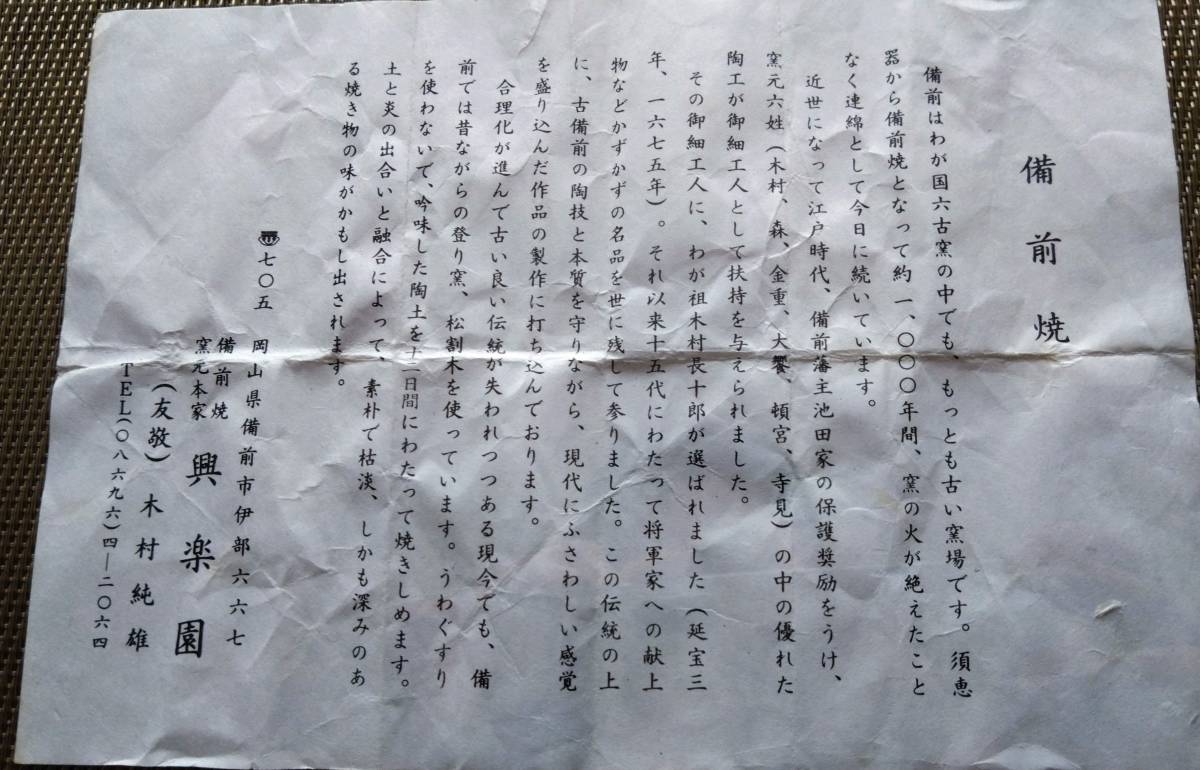 備前焼
備前はわが国六古窯の中でも、もっとも古い窯場です。須恵
器から備前焼となって約一、〇〇〇年間、窯の火が絶えたこと
なく連綿として今日に続いています。
近世になって江戸時代、備前藩主池田家の保護奨励をうけ、
窯元六姓（木村、森、金重、大饗、頓宮、寺見）の中の優れた
陶工が御細工人として扶持を与えられました。
その御細工人に、わが祖木村長十郎が選ばれました（延宝三
年、一六七五年）。それ以来十五代にわたって将軍家への献上
物などかずかずの名品を世に残して参りました。この伝統の上
に、古備前の陶技と本質を守りながら、現代にふさわしい感覚
を盛り込んだ作品の製作に打ち込んでおります。
合理化が進んで古い良い伝統が失われつつある現今でも、備
前では昔ながらの登り窯、松割木を使っています。うわぐすり
を使わないで、吟味した陶土を十二日間にわたって焼きしめます。
土と炎の出合いと融合によって、素朴で枯淡、しかも深みのあ
る焼き物の味がかもし出されます。
〠七〇五
岡山県備前市伊部六六七
備前焼
窯元本家 興楽園
（友敬） 木村純雄
TEL(〇八六九六)四―二〇六四